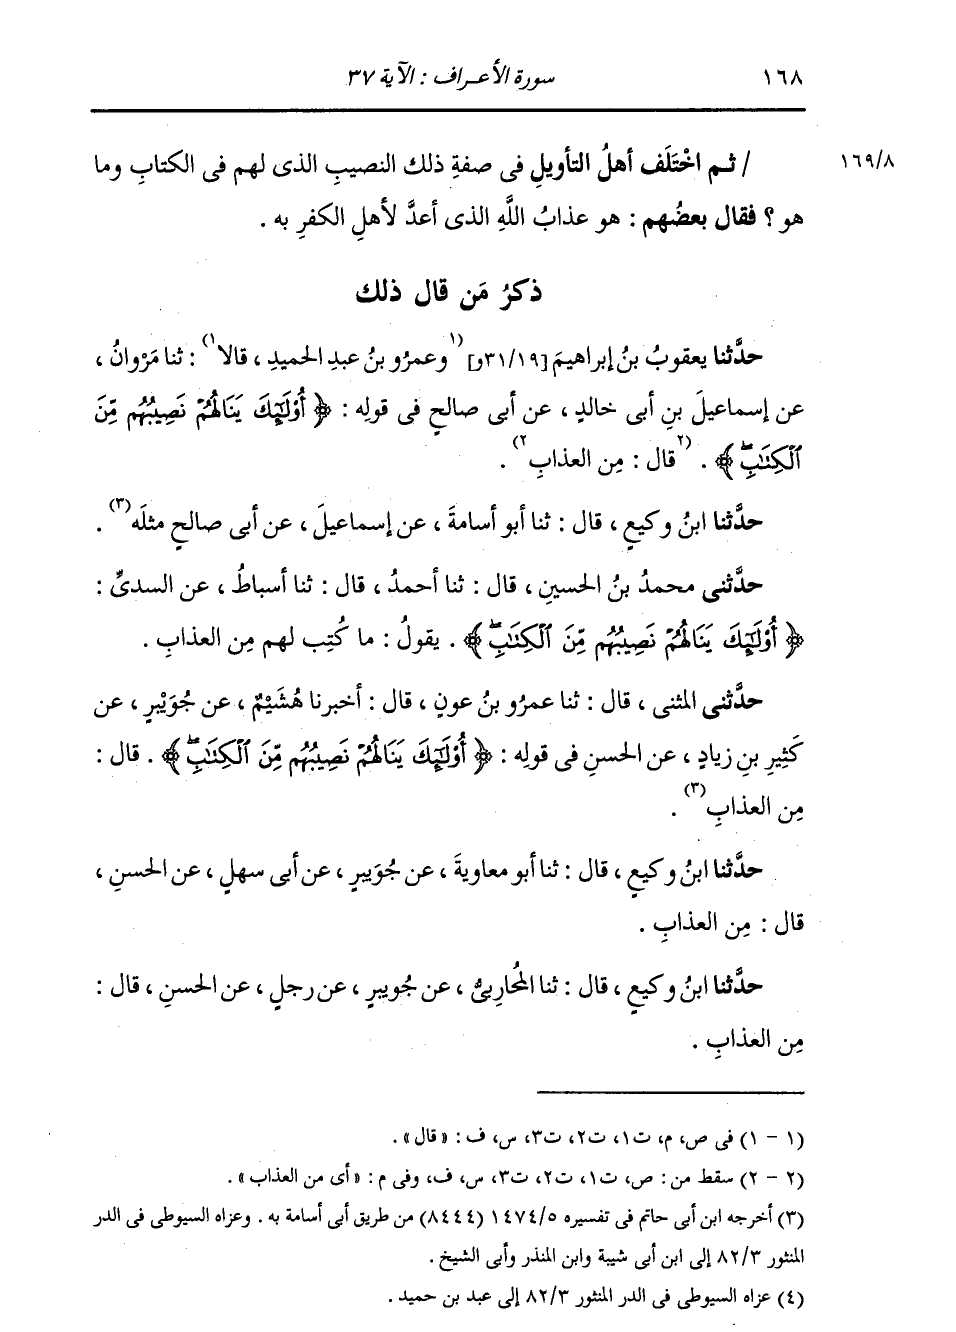 ١٦٨ سورة الأعراف : الآية ٣٧
١٦٩/٨ / ثم اخْتَلَف أهلُ التأويلِ فى صفةِ ذلك النصيبِ الذى لهم فى الكتابِ وما
هو ؟ فقال بعضُهم : هو عذابُ اللَّهِ الذى أعدَّ لأهلِ الكفرِ به .
ذكرُ مَن قال ذلك
حدَّثنا يعقوبُ بنُ إبراهيمَ [٣١/١٩و] (١)وعمرُو بنُ عبدِ الحميدِ ، قالا(١) : ثنا مَرْوانُ ،
عن إسماعيلَ بنِ أبى خالدٍ ، عن أبى صالحٍ فى قولِه : ﴿ أُوْلَٰٓئِكَ يَنَالُهُمْ نَصِيبُهُم مِّنَ
ٱلْكِتَٰبِۖ ﴾ . (٢)قال : مِن العذابِ(٢) .
حدَّثنا ابنُ وكيعٍ ، قال : ثنا أبو أسامةَ ، عن إسماعيلَ ، عن أبى صالحٍ مثلَه(٣) .
حدَّثنى محمدُ بنُ الحسينِ ، قال : ثنا أحمدُ ، قال : ثنا أسباطُ ، عن السدىِّ :
﴿ أُوْلَٰٓئِكَ يَنَالُهُمْ نَصِيبُهُم مِّنَ ٱلْكِتَٰبِۖ ﴾ . يقولُ : ما كُتِب لهم مِن العذابِ .
حدَّثنى المثنى ، قال : ثنا عمرُو بنُ عونٍ ، قال : أخبرنا هُشَيْمٌ ، عن جُوَيْبِرٍ ، عن
كَثِيرِ بنِ زيادٍ ، عن الحسنِ فى قولِه : ﴿ أُوْلَٰٓئِكَ يَنَالُهُمْ نَصِيبُهُم مِّنَ ٱلْكِتَٰبِۖ ﴾ . قال :
مِن العذابِ(٣) .
حدَّثنا ابنُ وكيعٍ ، قال : ثنا أبو معاويةَ ، عن جُوَيبرٍ ، عن أبى سهلٍ ، عن الحسنِ ،
قال : مِن العذابِ .
حدَّثنا ابنُ وكيعٍ ، قال : ثنا المُحاربىُّ ، عن جُويبرٍ ، عن رجلٍ ، عن الحسنِ ، قال :
مِن العذابِ .
(١ - ١) فى ص، م، ت١، ت٢، ت٣، س، ف : « قال » .
(٢ - ٢) سقط من : ص، ت١، ت٢، ت٣، س، ف، وفى م : « أى من العذاب » .
(٣) أخرجه ابن أبى حاتم فى تفسيره ١٤٧٤/٥ (٨٤٤٤) من طريق أبى أسامة به . وعزاه السيوطى فى الدر
المنثور ٨٢/٣ إلى ابن أبى شيبة وابن المنذر وأبى الشيخ .
(٤) عزاه السيوطى فى الدر المنثور ٨٢/٣ إلى عبد بن حميد .